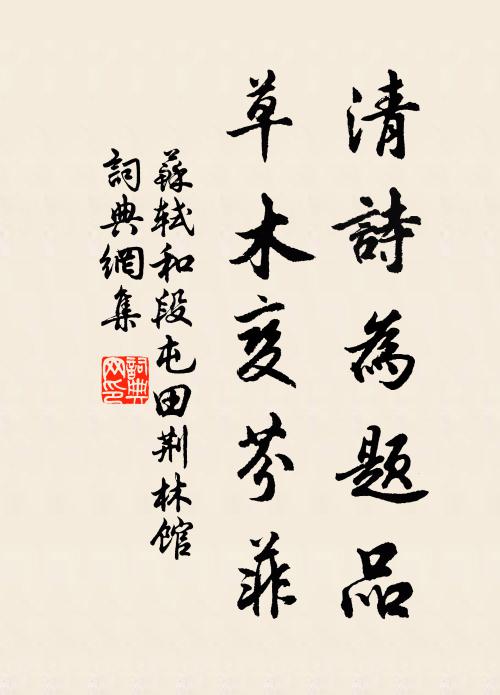 清詩為題品
草木变芬菲
蘇軾和段屯田荆林馆
詞典網集
詞典网印